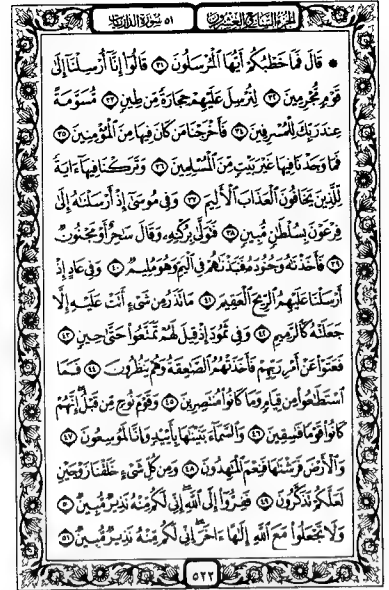 الجزء السابع والعشرون ٥١ سورة الذاريات
۞ قَالَ فَمَا خَطْبُكُمْ أَيُّهَا الْمُرْسَلُونَ ٣١ قَالُوا إِنَّا أُرْسِلْنَا إِلَى
قَوْمٍ مُّجْرِمِينَ ٣٢ لِنُرْسِلَ عَلَيْهِمْ حِجَارَةً مِّن طِينٍ ٣٣ مُّسَوَّمَةً
عِندَ رَبِّكَ لِلْمُسْرِفِينَ ٣٤ فَأَخْرَجْنَا مَن كَانَ فِيهَا مِنَ الْمُؤْمِنِينَ ٣٥
فَمَا وَجَدْنَا فِيهَا غَيْرَ بَيْتٍ مِّنَ الْمُسْلِمِينَ ٣٦ وَتَرَكْنَا فِيهَا ءَايَةً
لِّلَّذِينَ يَخَافُونَ الْعَذَابَ الْأَلِيمَ ٣٧ وَفِي مُوسَىٰ إِذْ أَرْسَلْنَاهُ إِلَىٰ
فِرْعَوْنَ بِسُلْطَانٍ مُّبِينٍ ٣٨ فَتَوَلَّىٰ بِرُكْنِهِ وَقَالَ سَاحِرٌ أَوْ مَجْنُونٌ
٣٩ فَأَخَذْنَاهُ وَجُنُودَهُ فَنَبَذْنَاهُمْ فِي الْيَمِّ وَهُوَ مُلِيمٌ ٤٠ وَفِي عَادٍ إِذْ
أَرْسَلْنَا عَلَيْهِمُ الرِّيحَ الْعَقِيمَ ٤١ مَا تَذَرُ مِن شَيْءٍ أَتَتْ عَلَيْهِ إِلَّا
جَعَلَتْهُ كَالرَّمِيمِ ٤٢ وَفِي ثَمُودَ إِذْ قِيلَ لَهُمْ تَمَتَّعُوا حَتَّىٰ حِينٍ ٤٣
فَعَتَوْا عَنْ أَمْرِ رَبِّهِمْ فَأَخَذَتْهُمُ الصَّاعِقَةُ وَهُمْ يَنظُرُونَ ٤٤ فَمَا
اسْتَطَاعُوا مِن قِيَامٍ وَمَا كَانُوا مُنتَصِرِينَ ٤٥ وَقَوْمَ نُوحٍ مِّن قَبْلُ إِنَّهُمْ
كَانُوا قَوْمًا فَاسِقِينَ ٤٦ وَالسَّمَاءَ بَنَيْنَاهَا بِأَيْيدٍ وَإِنَّا لَمُوسِعُونَ ٤٧
وَالْأَرْضَ فَرَشْنَاهَا فَنِعْمَ الْمَاهِدُونَ ٤٨ وَمِن كُلِّ شَيْءٍ خَلَقْنَا زَوْجَيْنِ
لَعَلَّكُمْ تَذَكَّرُونَ ٤٩ فَفِرُّوا إِلَى اللَّهِ إِنِّي لَكُم مِّنْهُ نَذِيرٌ مُّبِينٌ ٥٠
وَلَا تَجْعَلُوا مَعَ اللَّهِ إِلَٰهًا ءَاخَرَ إِنِّي لَكُم مِّنْهُ نَذِيرٌ مُّبِينٌ ٥١
٥٢٢